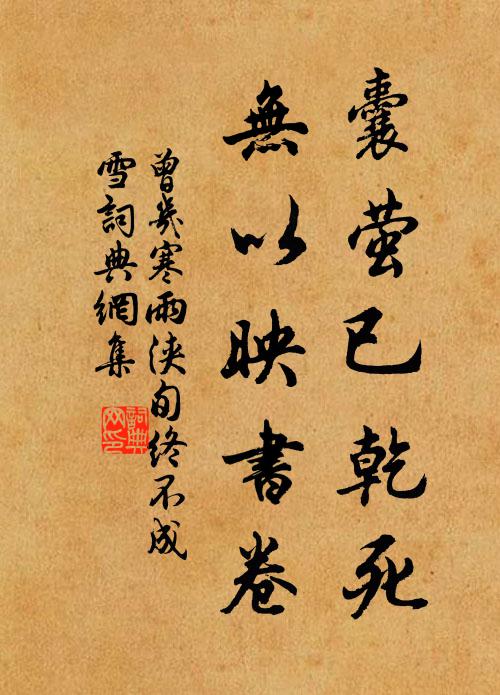 囊萤已乾死
無以映書卷
曾幾寒雨浹旬終不成
雪詞典網集
詞典
网印